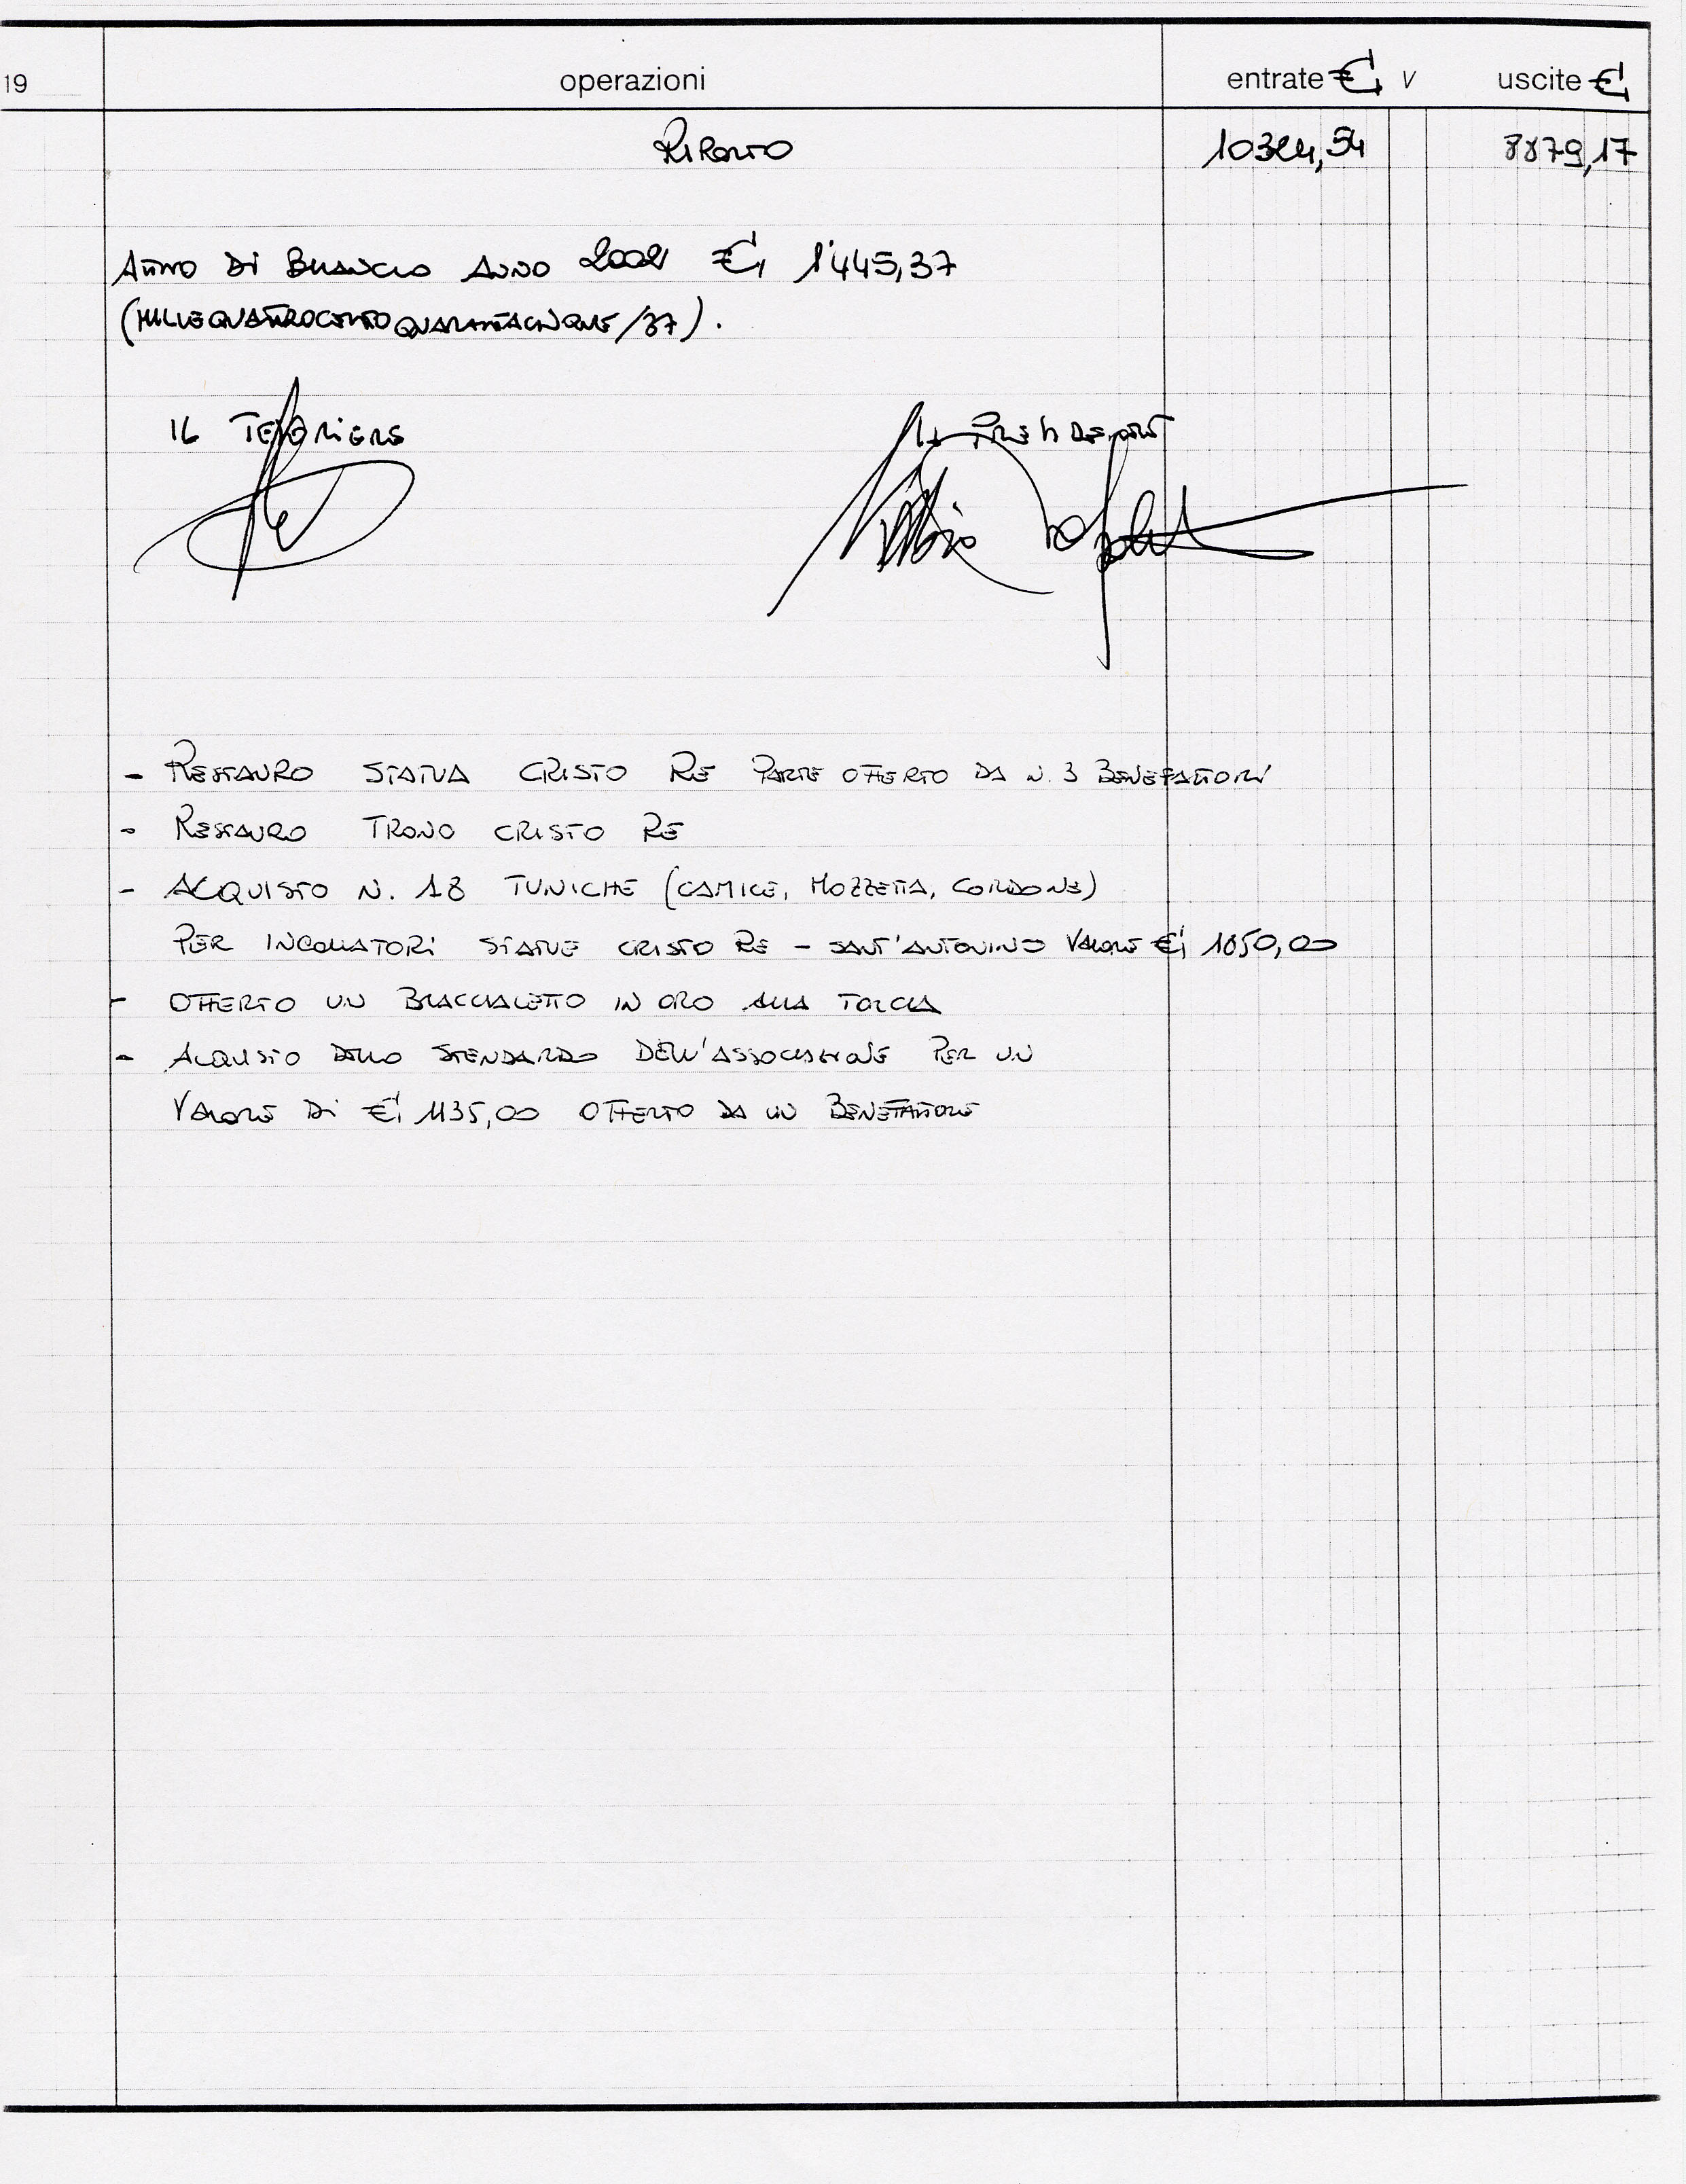 19 operazioni entrate € V uscite €
RIPORTO 10324,54 8879,17
ATTIVO DI BILANCIO ANNO 2002 € 1'445,37
(MILLEQUATTROCENTOQUARANTACINQUE/37).
IL TESORIERE IL PRESIDENTE
- RESTAURO STATUA CRISTO RE PARTE OFFERTO DA N. 3 BENEFATTORI
- RESTAURO TRONO CRISTO RE
- ACQUISTO N. 18 TUNICHE (CAMICE, MOZZETTA, CORDONE)
PER INCOLLATORI STATUE CRISTO RE - SANT'ANTONINO VALORE € 1050,00
- OFFERTO UN BRACCIALETTO IN ORO ALLA TORCIA
- ACQUISTO DELLO STENDARDO DELL'ASSOCIAZIONE PER UN
VALORE DI € 1135,00 OFFERTO DA UN BENEFATTORE